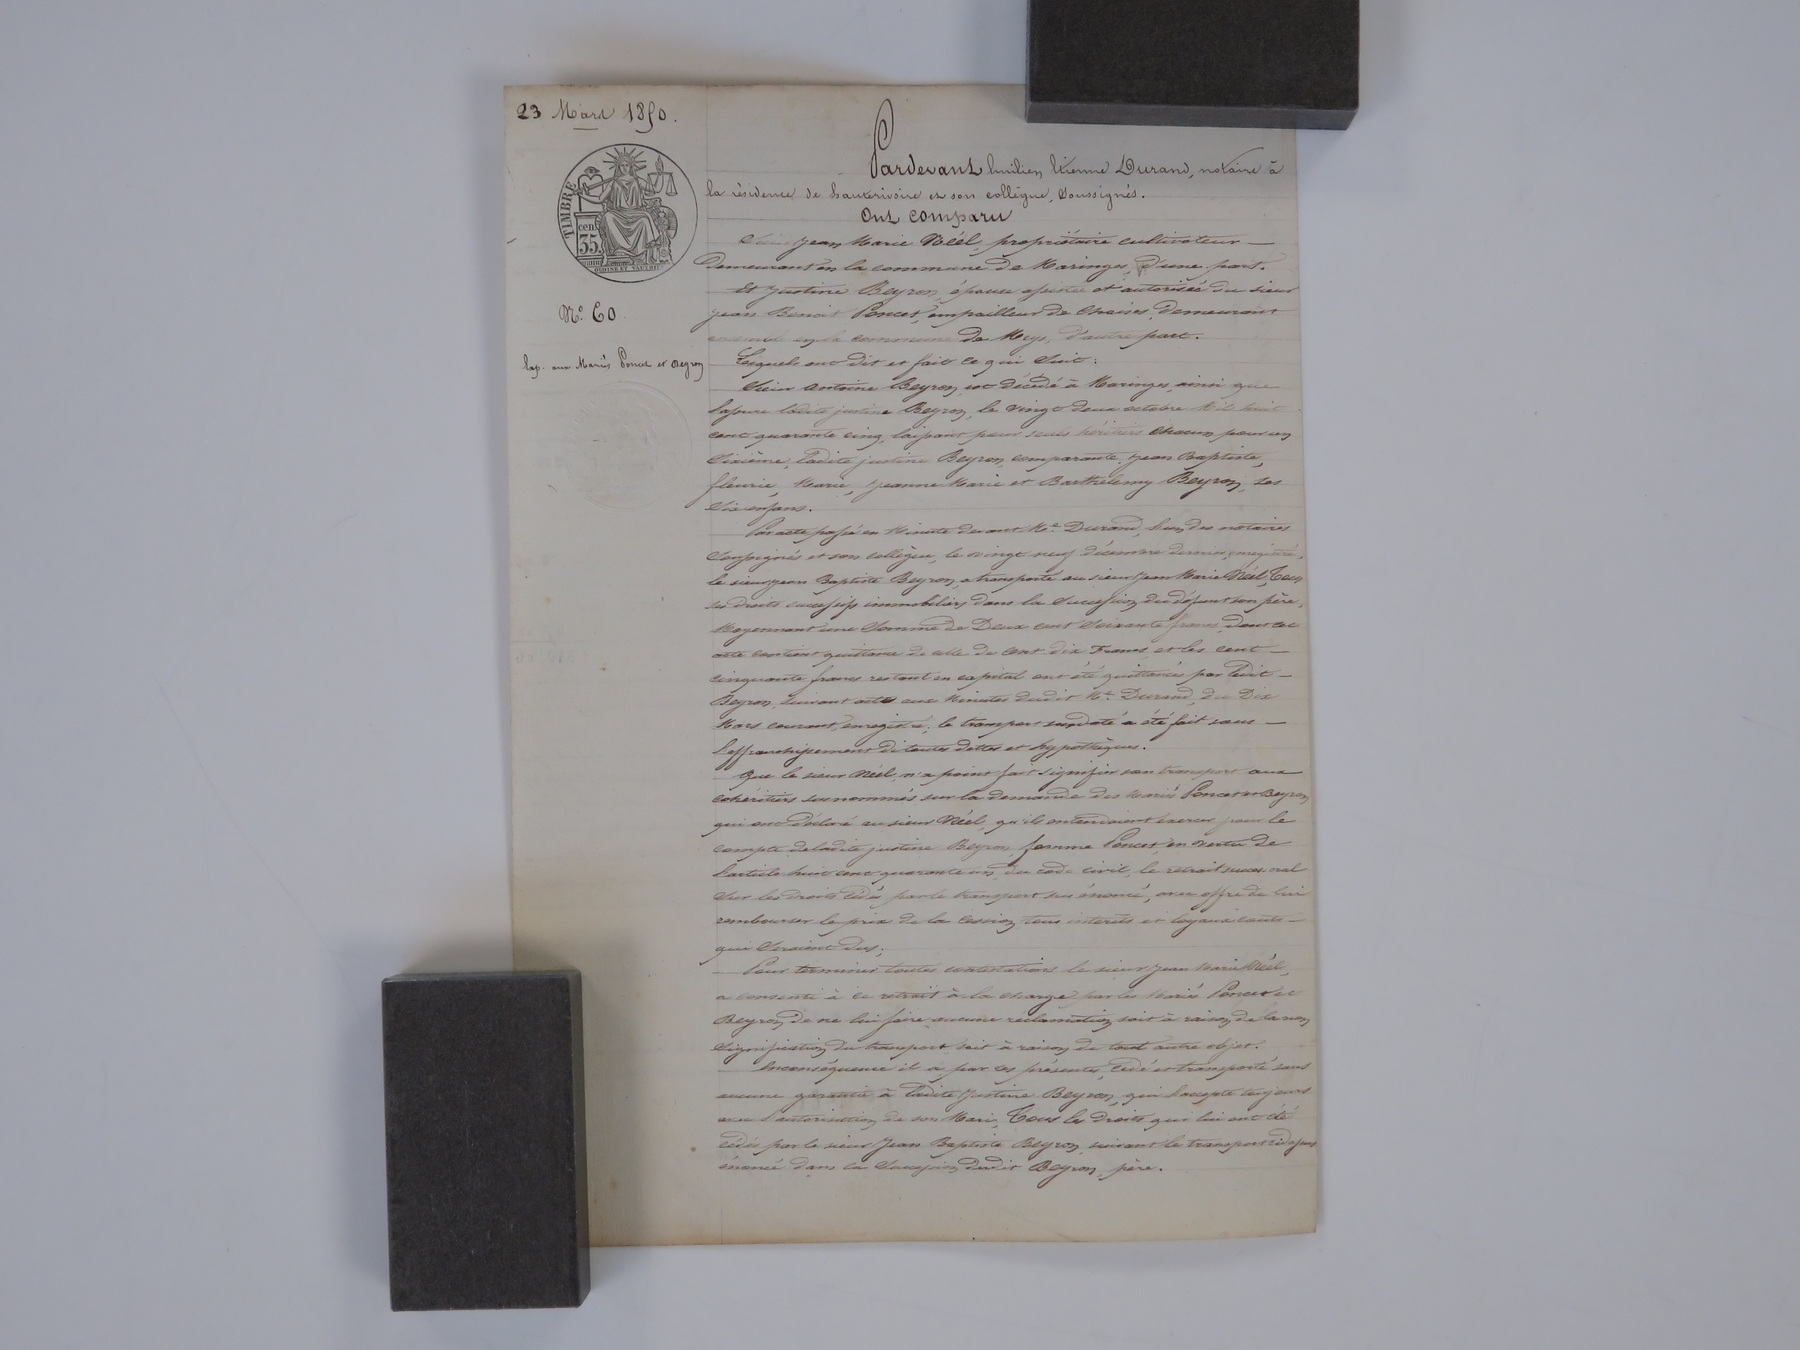 23 Mars 1850.
TIMBRE
cen.
35.
N.º 60
Exp. aux Mariés Poncet et Beyron
Pardevant Emilien Etienne Durand, notaire à
la résidence de hauterivoire et son collègue, soussignés.
Ont comparu
Sieur Jean Marie Néél, propriétaire cultivateur —
demeurant en la commune de Maringes, d'une part.
Et Justine Beyron, épouse assistée et autorisée du sieur
Jean Benoit Poncet, empailleur de Chaises, demeurant
ensemble en la commune de Meys, d'autre part.
Lesquels ont dit et fait ce qui suit :
Sieur Antoine Beyron, est décédé à Maringes, ainsi que
l'assure ladite justine Beyron, le vingt deux octobre Mil huit
cent quarante cinq, laissant pour seuls héritiers chacun pour un
Sixième, ladite justine Beyron, comparante, Jean Baptiste,
fleurie, Marie, Jeanne Marie et Barthélemy Beyron, ses
Six enfans.
Par acte passé en Minute devant Me. Durand, l'un des notaires
Soussignés et son collègue, le vingt neuf décembre dernier, enregistré,
le sieur Jean Baptiste Beyron, a transporté au sieur Jean Marie Néél, Tous
ses droits successifs immobiliers dans la Succession du défunt son père,
Moyennant une Somme de Deux cent Soixante francs, dont cet
acte contient quittance de celle de Cent dix Francs et les cent —
cinquante francs restant en capital ont été quittancés par ledit —
Beyron, suivant acte aux Minutes dudit Me. Durand, du Dix
Mars courant, enregistré; le transport susdaté a été fait sous —
l'affranchissement de toutes dettes et hypothèques.
Que le sieur Néél, n'a point fait signifier son transport aux
cohéritiers susnommés sur la demande des Mariés Poncet et Beyron
qui ont déclaré au sieur Néél, qu'ils entendaient exercer pour le
compte de ladite justine Beyron femme Poncet, en vertu de
l'article huit cent quarante un, du code civil, le retrait successoral
Sur les droits cédés par le transport sus énoncé, avec offre de lui
rembourser le prix de la Cession, tous intérêts et loyaux couts —
qui Seraient dus;
Pour terminer toutes contestations le sieur Jean Marie Néél,
a consenti à ce retrait à la charge par les Mariés Poncet et
Beyron, de ne lui faire aucune réclamation, soit à raison de la non
Signification du transport, soit à raison de tout autre objet.
Enconséquence il a par ces présentes, Cédé et transporté sans
aucune garantie à ladite Justine Beyron, qui l'accepte toujours
avec l'autorisation de son Mari, Tous les droits qui lui ont été
cédés par le sieur Jean Baptiste Beyron, suivant le transport cidessus
énoncé dans la Succession dudit Beyron, père.